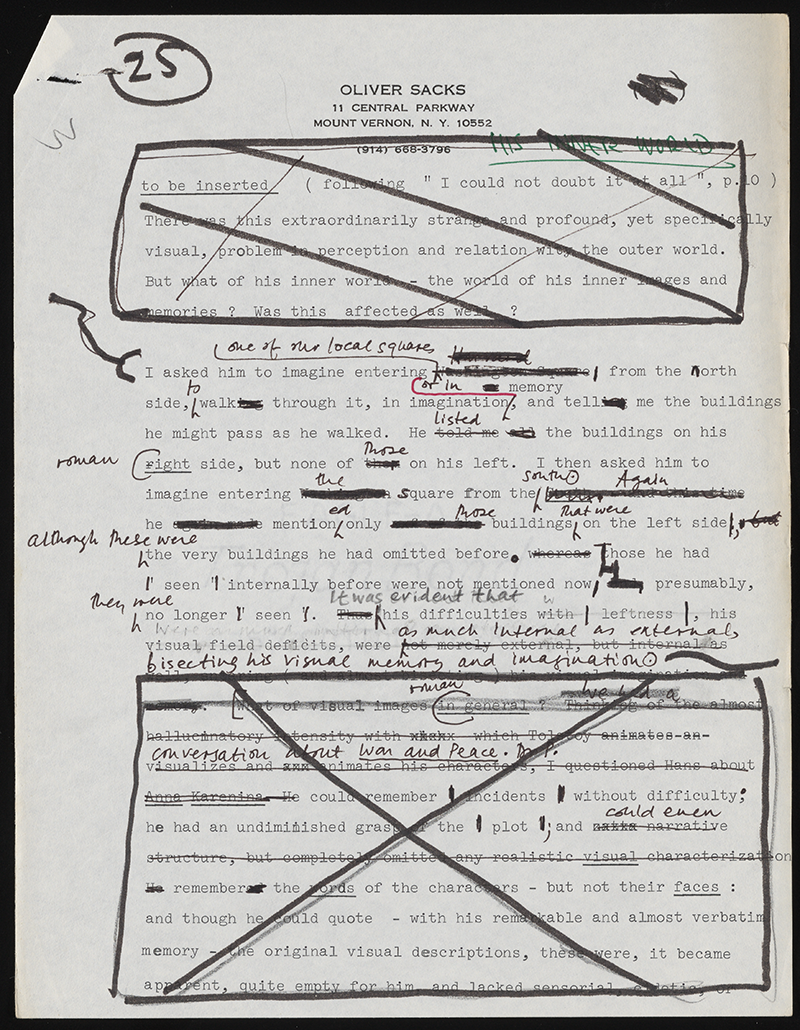 25
OLIVER SACKS
11 CENTRAL PARKWAY
MOUNT VERNON, N. Y. 10552
(914) 668-3796
HIS INNER WORLD
to be inserted ( following " I could not doubt it at all ", p.10 )
There was this extraordinarily strange and profound, yet specifically
visual, problem in perception and relation with the outer world.
But what of his inner world - the world of his inner images and
memories ? Was this affected as well ?
one of our local squares
I asked him to imagine entering Washington Square, from the North
to or in memory
side, walk through it, in imagination, and tell me the buildings
listed
he might pass as he walked. He told me all the buildings on his
roman those
right side, but none of them on his left. I then asked him to
the south. Again
imagine entering Square from the
ed those that were
he mention only buildings on the left side, but
although these were
the very buildings he had omitted before. whereas Those he had
" seen " internally before were not mentioned now; presumably,
They were It was evident that
no longer " seen ". Thus his difficulties with leftness, his
as much internal as external,
visual field defidits, were not merely external, but internal as
bisecting his visual memory and imagination.
roman We had a
memory. What of visual images in general ? Thinking of the almost
hallucinatory intensity with which Tolstoy animates an
conversation about War and Peace.
visualizes and animates his characters, I questioned Hans about
Anna Karenina. He could remember incidents without difficulty;
could even
he had an undiminished grasp of the plot; and narrative
structure, but completely omitted any realistic visual characterization
He remember the words of the characters - but not their faces :
and though he could quote - with his remarkable and almost verbatim
memory - the original visual descriptions, these were, it became
apparent, quite empty for him, and lacked sensorial, eidetic, or